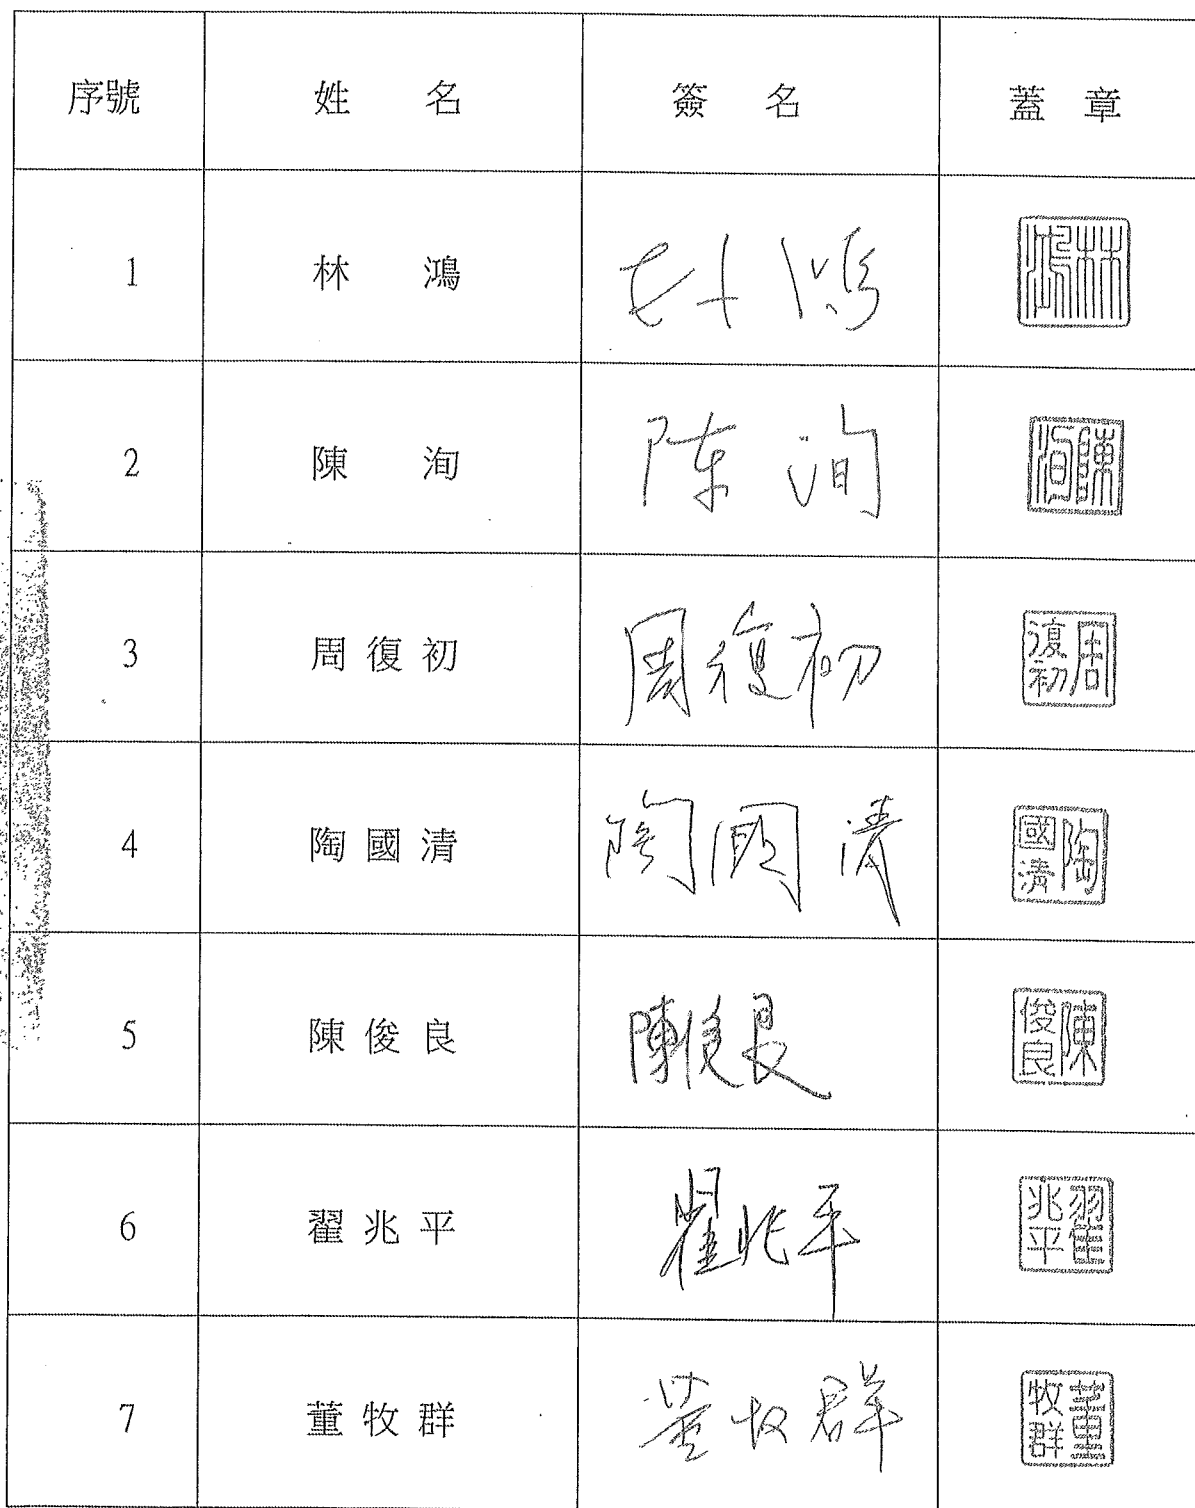 序號 姓 名 簽 名 蓋 章
1 林 鴻 林鴻 林鴻
2 陳 洵 陈洵 陳洵
3 周復初 周復初 周復初
4 陶國清 陶國清 陶國清
5 陳俊良 陳俊良 陳俊良
6 翟兆平 翟兆平 翟兆平
7 董牧群 董牧群 董牧群